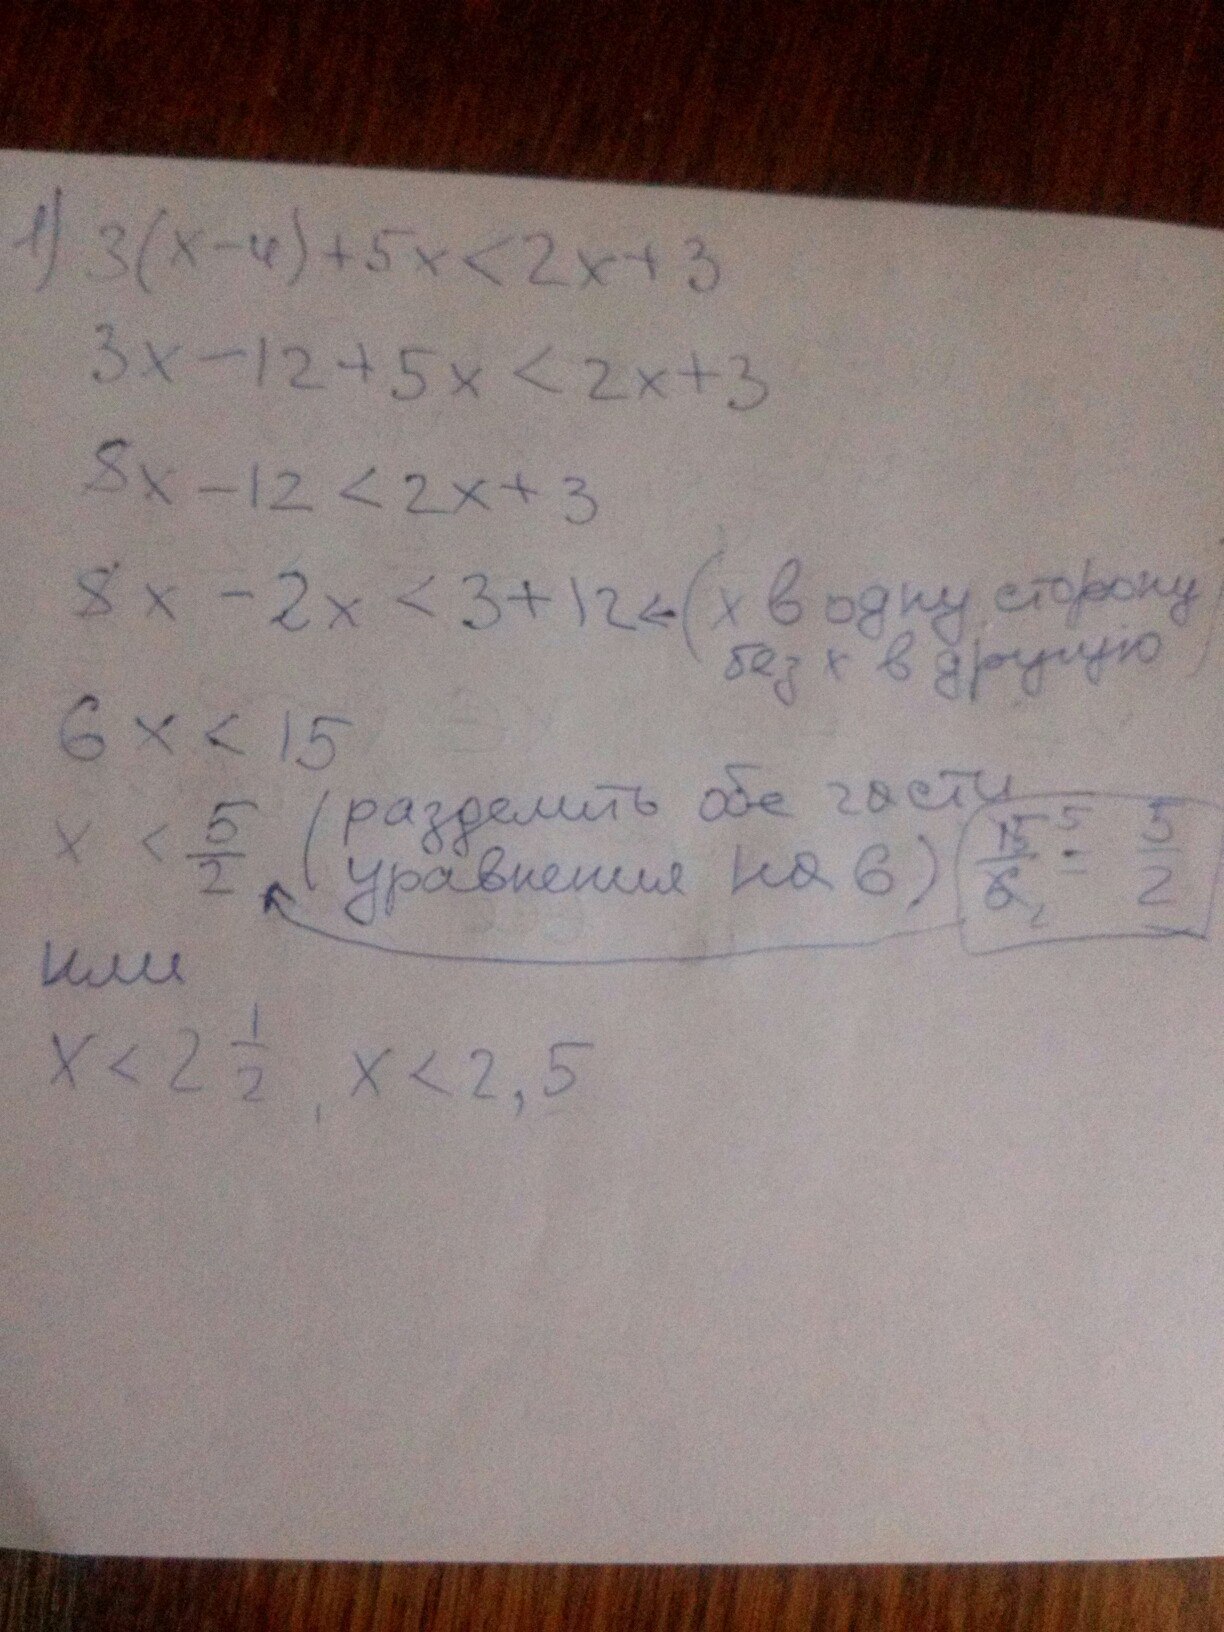 1) 3(x-4)+5x<2x+3
3x-12+5x<2x+3
8x-12<2x+3
8x-2x<3+12←(x в одну сторону
без x в другую)
6x<15
x<5/2 (разделить обе части
уравнения на 6) 15/6 = 5/2
или
x<2 1/2, x<2,5